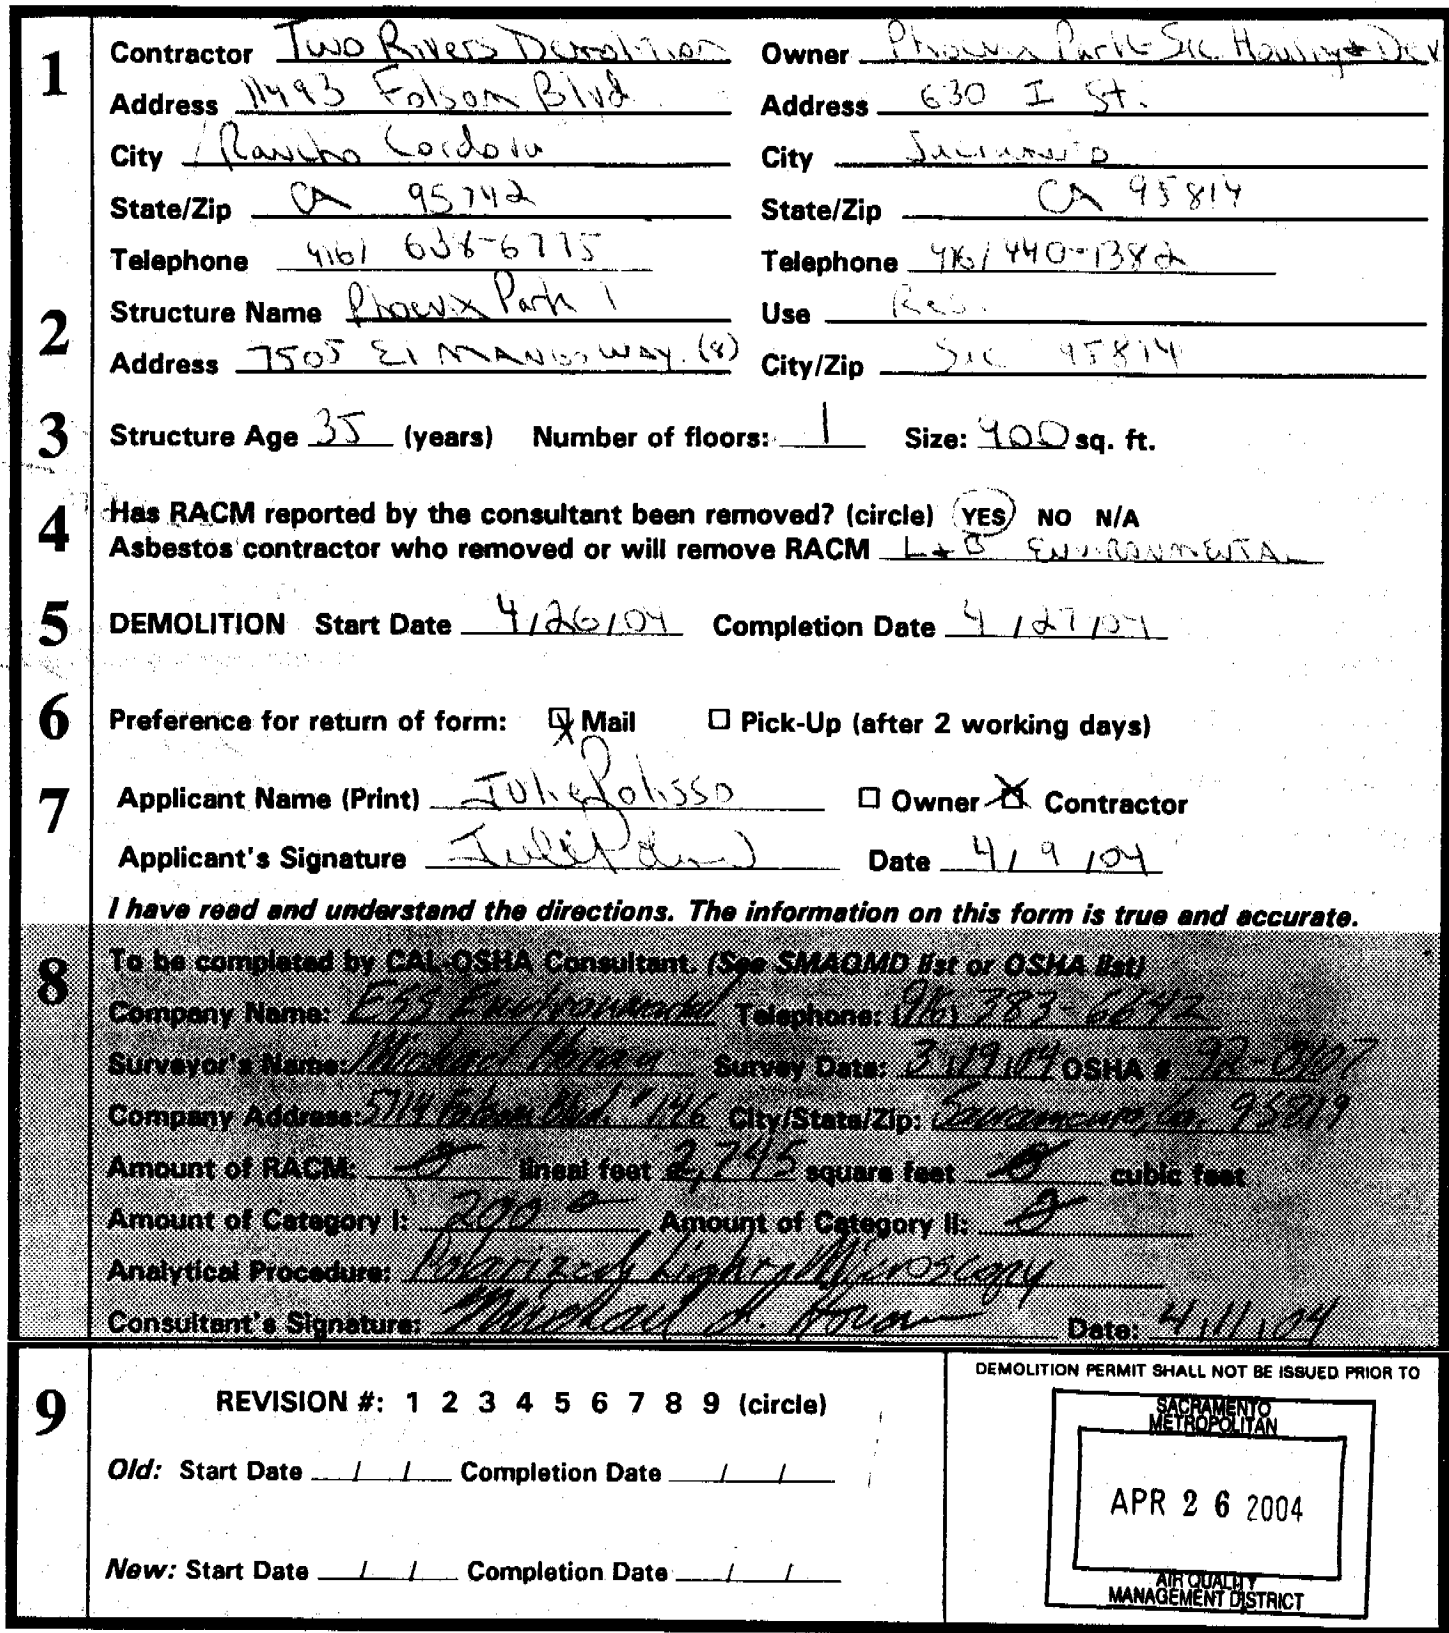 1
Contractor Two Rivers Demolition Owner Phoenix Park-Sac Housing & Dev
Address 11493 Folsom Blvd Address 630 I St.
City Rancho Cordova City Sacramento
State/Zip CA 95742 State/Zip CA 95814
Telephone 916/ 638-6775 Telephone 916/440-1382
2
Structure Name Phoenix Park 1 Use Res.
Address 7505 El Mango Way. (8) City/Zip Sac 95814
3
Structure Age 35 (years) Number of floors: 1 Size: 900 sq. ft.
4
Has RACM reported by the consultant been removed? (circle) YES NO N/A
Asbestos contractor who removed or will remove RACM L&B ENVIRONMENTAL
5
DEMOLITION Start Date 4/26/04 Completion Date 4/27/04
6
Preference for return of form: X Mail □ Pick-Up (after 2 working days)
7
Applicant Name (Print) Julie Polisso □ Owner X Contractor
Applicant's Signature Date 4/9/04
I have read and understand the directions. The information on this form is true and accurate.
8
To be completed by CAL-OSHA Consultant. (See SMAQMD list or OSHA list)
Company Name: Environmental Telephone: (916) 383-6642
Surveyor's Name: Michael Survey Date: 3/19/04 OSHA # 92-0407
Company Address: 5714 Folsom Blvd. #146 City/State/Zip: Sacramento, Ca. 95819
Amount of RACM: 0 lineal feet 2,745 square feet 0 cubic feet
Amount of Category I: 200 Amount of Category II: 0
Analytical Procedure: Polarized Light Microscopy
Consultant's Signature: Michael Date: 4/1/04
9
REVISION #: 1 2 3 4 5 6 7 8 9 (circle)
Old: Start Date / / Completion Date / /
New: Start Date / / Completion Date / /
DEMOLITION PERMIT SHALL NOT BE ISSUED PRIOR TO
SACRAMENTO
METROPOLITAN
APR 26 2004
AIR QUALITY
MANAGEMENT DISTRICT